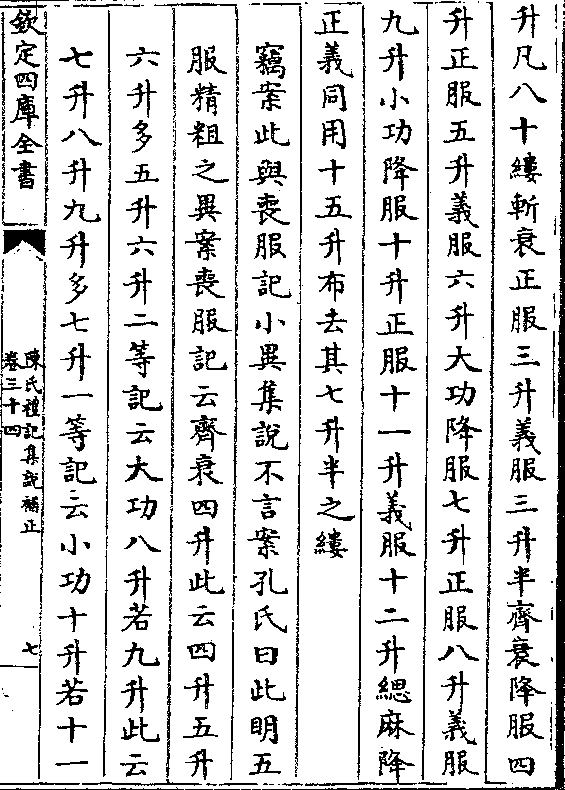 升凡八十縷斬衰正服三升義服三升半齊衰降服四
升正服五升義服六升大功降服七升正服八升義服
九升小功降服十升正服十一升義服十二升緦麻降
正義同用十五升布去其七升半之縷
竊案此與喪服記小異集說不言案孔氏曰此明五
服精粗之異案喪服記云齊衰四升此云四升五升
六升多五升六升二等記云大功八升若九升此云
七升八升九升多七升一等記云小功十升若十一
欽定四庫全書
陳氏禮記集說補正
卷三十四
七